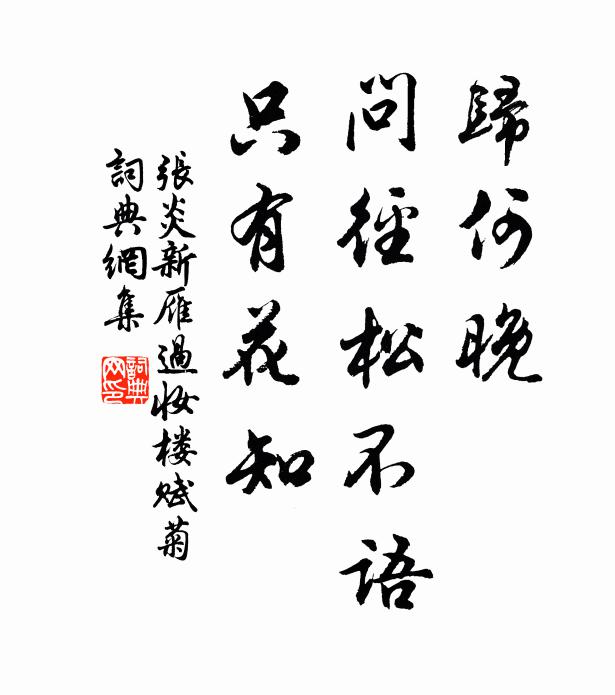 歸何晚
問徑松不語
只有花知
張炎新雁過妝楼赋菊
詞典網集
詞典网印